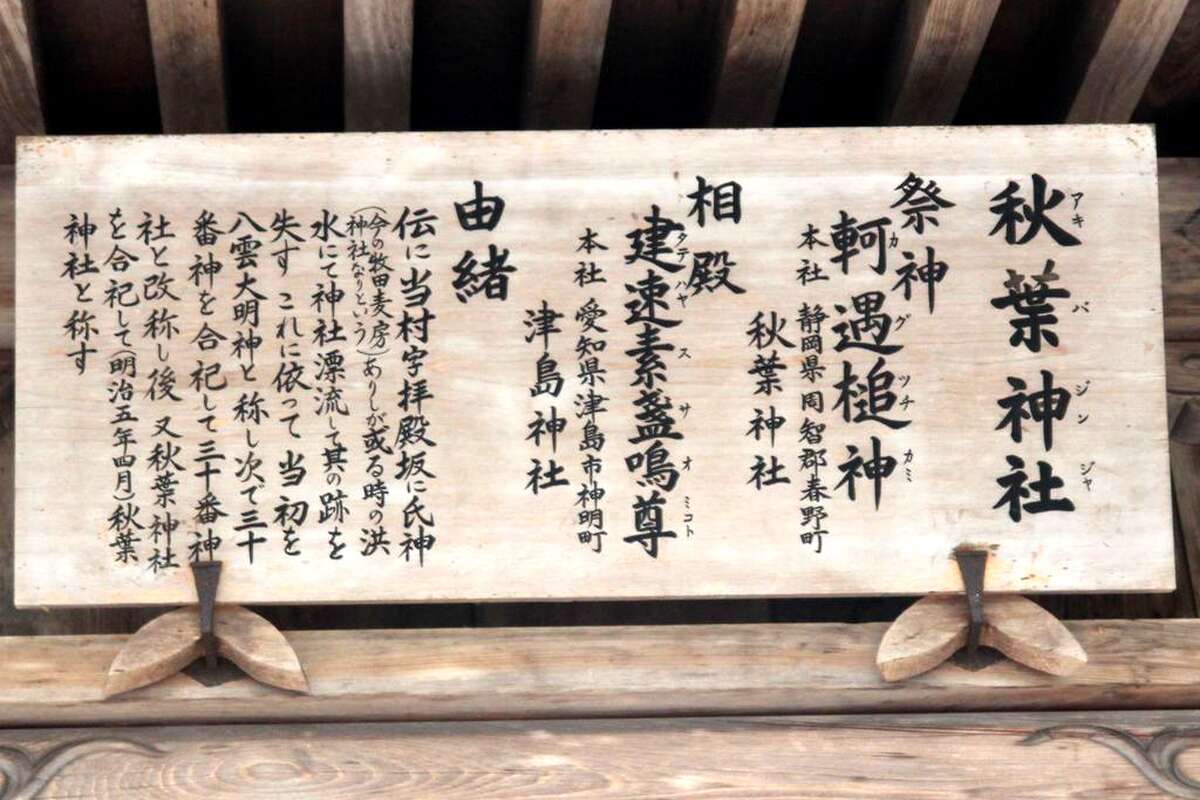 秋葉神社
アキバジンジャ
祭神
軻遇槌神
カグツチカミ
本社 静岡県周智郡春野町
秋葉神社
相殿
建速素盞鳴尊
タテハヤスサオミコト
本社 愛知県津島市神明町
津島神社
由緒
伝に当村字拝殿坂に氏神
(今の牧田麦房)ありしが或る時の洪
神社なりという
水にて神社漂流して其の跡を
失す これに依って当初を
八雲大明神と称し次で三十
番神を合祀して三十番神
社と改称し後 又秋葉神社
を合祀して(明治五年四月)秋葉
神社と称す